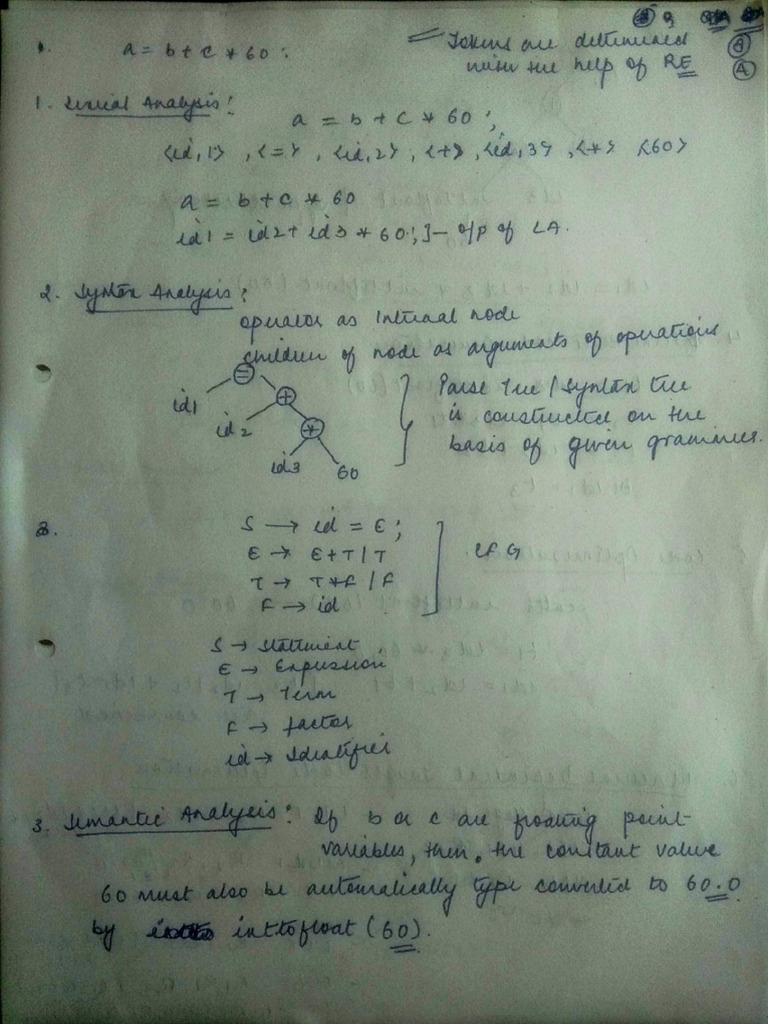 a = b + c * 60 ;
Tokens are determined
with the help of RE
1. Lexical Analysis :
a = b + c * 60 ;
<id,1> , <=> , <id,2> , <+> , <id,3> , <*> <60>
a = b + c * 60
id1 = id2 + id3 * 60 ; ]— o/p of LA.
2. Syntax Analysis :
operator as internal node
children of node as arguments of operations
=
id1 +
id2 *
id3 60
Parse Tree / Syntax tree
is constructed on the
basis of given grammer.
S → id = E ;
E → E + T / T
T → T * F / F
F → id
CFG
S → Statement
E → Expression
T → Term
F → factor
id → Identifier
3. Semantic Analysis : If b or c are floating point
variables, then the constant value
60 must also be automatically type converted to 60.0
by inttofloat (60).